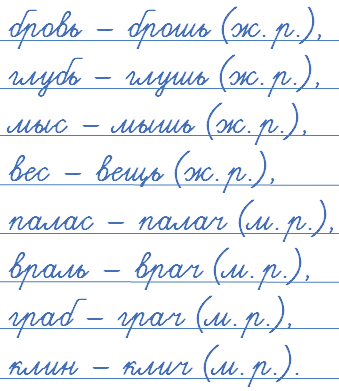 бровь – брошь (ж. р.),
глубь – глушь (ж. р.),
мыс – мышь (ж. р.),
вес – вещь (ж. р.),
палас – палач (м. р.),
враль – врач (м. р.),
граб – грач (м. р.),
клин – клич (м. р.).